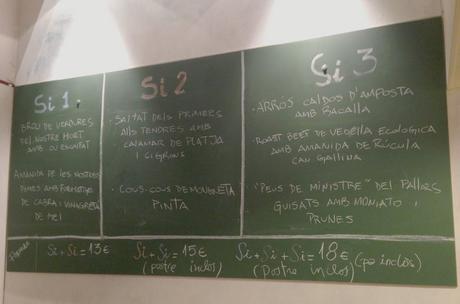 Si 1
BROU DE VERDURES
DEL NOSTRE HORT
AMB OU ESCALFAT
AMANIDA DE LES NOSTRES
AMB FORMATGE
DE CABRA I VINAGRETA
DE MEL
Si 2
· SALTAT DELS PRIMERS
ALLS TENDRES AMB
CALAMAR DE PLATJA
I CIGRONS
· COUS-COUS DE MONGUETA
PINTA
Si 3
· ARRÓS CALDÓS D'AMPOSTA
AMB BACALLÀ
· ROAST BEEF DE VEDELLA ECOLÒGICA
AMB AMANIDA DE RÚCULA
CAN GALLINA
· "PEUS DE MINISTRE" DEL PALLARS
GUISATS AMB MONIATO I
PRUNES
Si + Si = 13€
Si + Si = 15€
(postre inclos)
Si + Si + Si = 18€ (pa inclòs)
(Postre inclos)